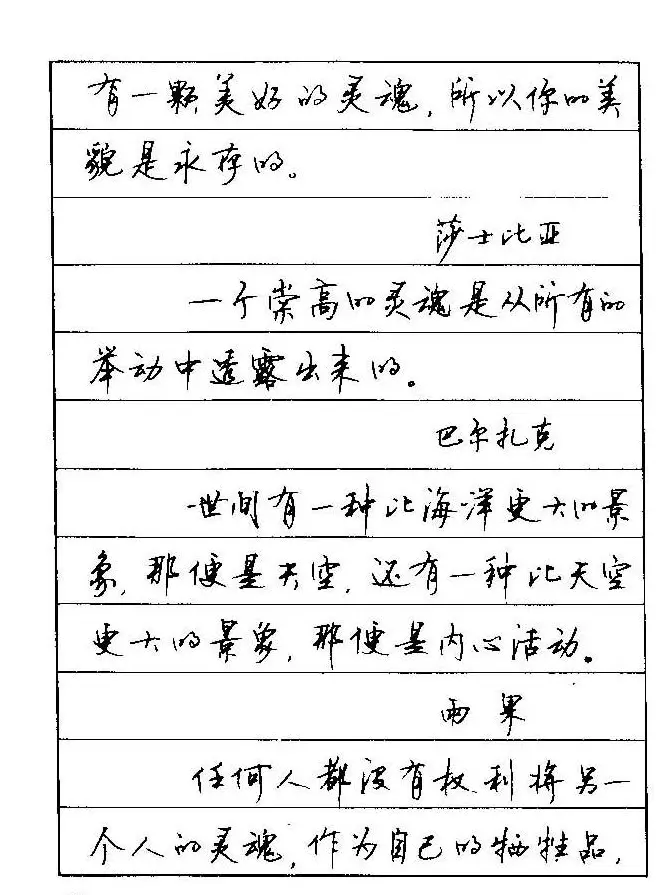 有一颗美好的灵魂，所以你的美
貌是永存的。
莎士比亚
一个崇高的灵魂是从所有的
举动中透露出来的。
巴尔扎克
世间有一种比海洋更大的景
象，那便是天空，还有一种比天空
更大的景象，那便是内心活动。
雨果
任何人都没有权利将另一
个人的灵魂，作为自己的牺牲品，